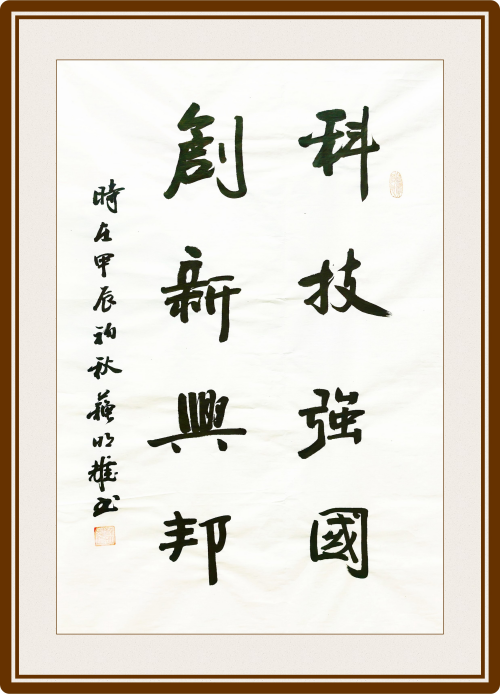 科技強國
創新興邦
時在甲辰初秋蘇明雄书